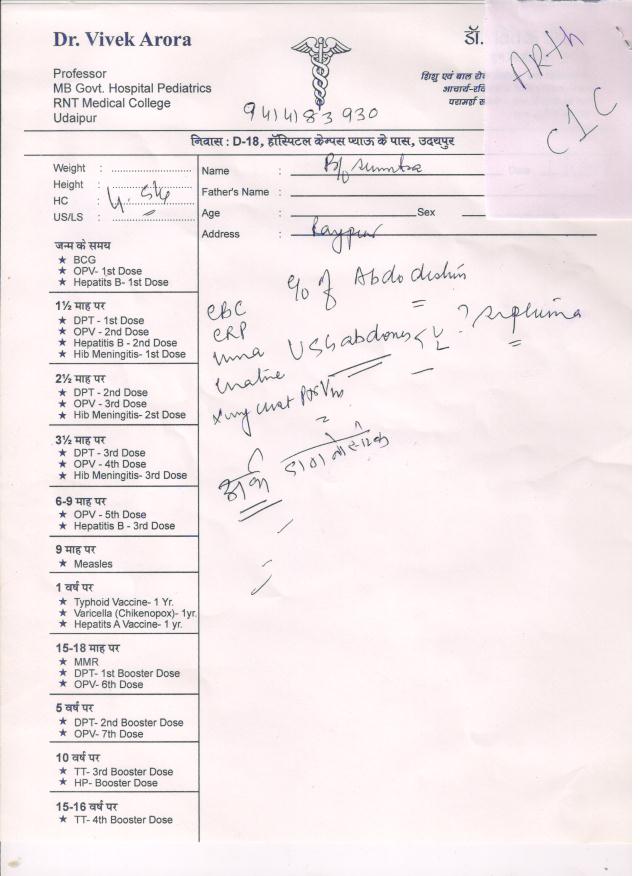 Dr. Vivek Arora
Professor
MB Govt. Hospital Pediatrics
RNT Medical College
Udaipur
9414183930
डॉ.
शिशु एवं बाल रो
आचार्य-रवि
परामर्श स
ARth
C1C
निवास : D-18, हॉस्पिटल केम्पस प्याऊ के पास, उदयपुर
Weight :
Height :
HC :
US/LS :
Name : B/o Sumitra
Father's Name :
Age : Sex
Address : Raypur
जन्म के समय
★ BCG
★ OPV- 1st Dose
★ Hepatits B- 1st Dose
1½ माह पर
★ DPT - 1st Dose
★ OPV - 2nd Dose
★ Hepatitis B - 2nd Dose
★ Hib Meningitis- 1st Dose
2½ माह पर
★ DPT - 2nd Dose
★ OPV - 3rd Dose
★ Hib Meningitis- 2st Dose
3½ माह पर
★ DPT - 3rd Dose
★ OPV - 4th Dose
★ Hib Meningitis- 3rd Dose
6-9 माह पर
★ OPV - 5th Dose
★ Hepatitis B - 3rd Dose
9 माह पर
★ Measles
1 वर्ष पर
★ Typhoid Vaccine- 1 Yr.
★ Varicella (Chikenopox)- 1yr.
★ Hepatits A Vaccine- 1 yr.
15-18 माह पर
★ MMR
★ DPT- 1st Booster Dose
★ OPV- 6th Dose
5 वर्ष पर
★ DPT- 2nd Booster Dose
★ OPV- 7th Dose
10 वर्ष पर
★ TT- 3rd Booster Dose
★ HP- Booster Dose
15-16 वर्ष पर
★ TT- 4th Booster Dose
of Abdo
CBC
CRP
USG abdomen